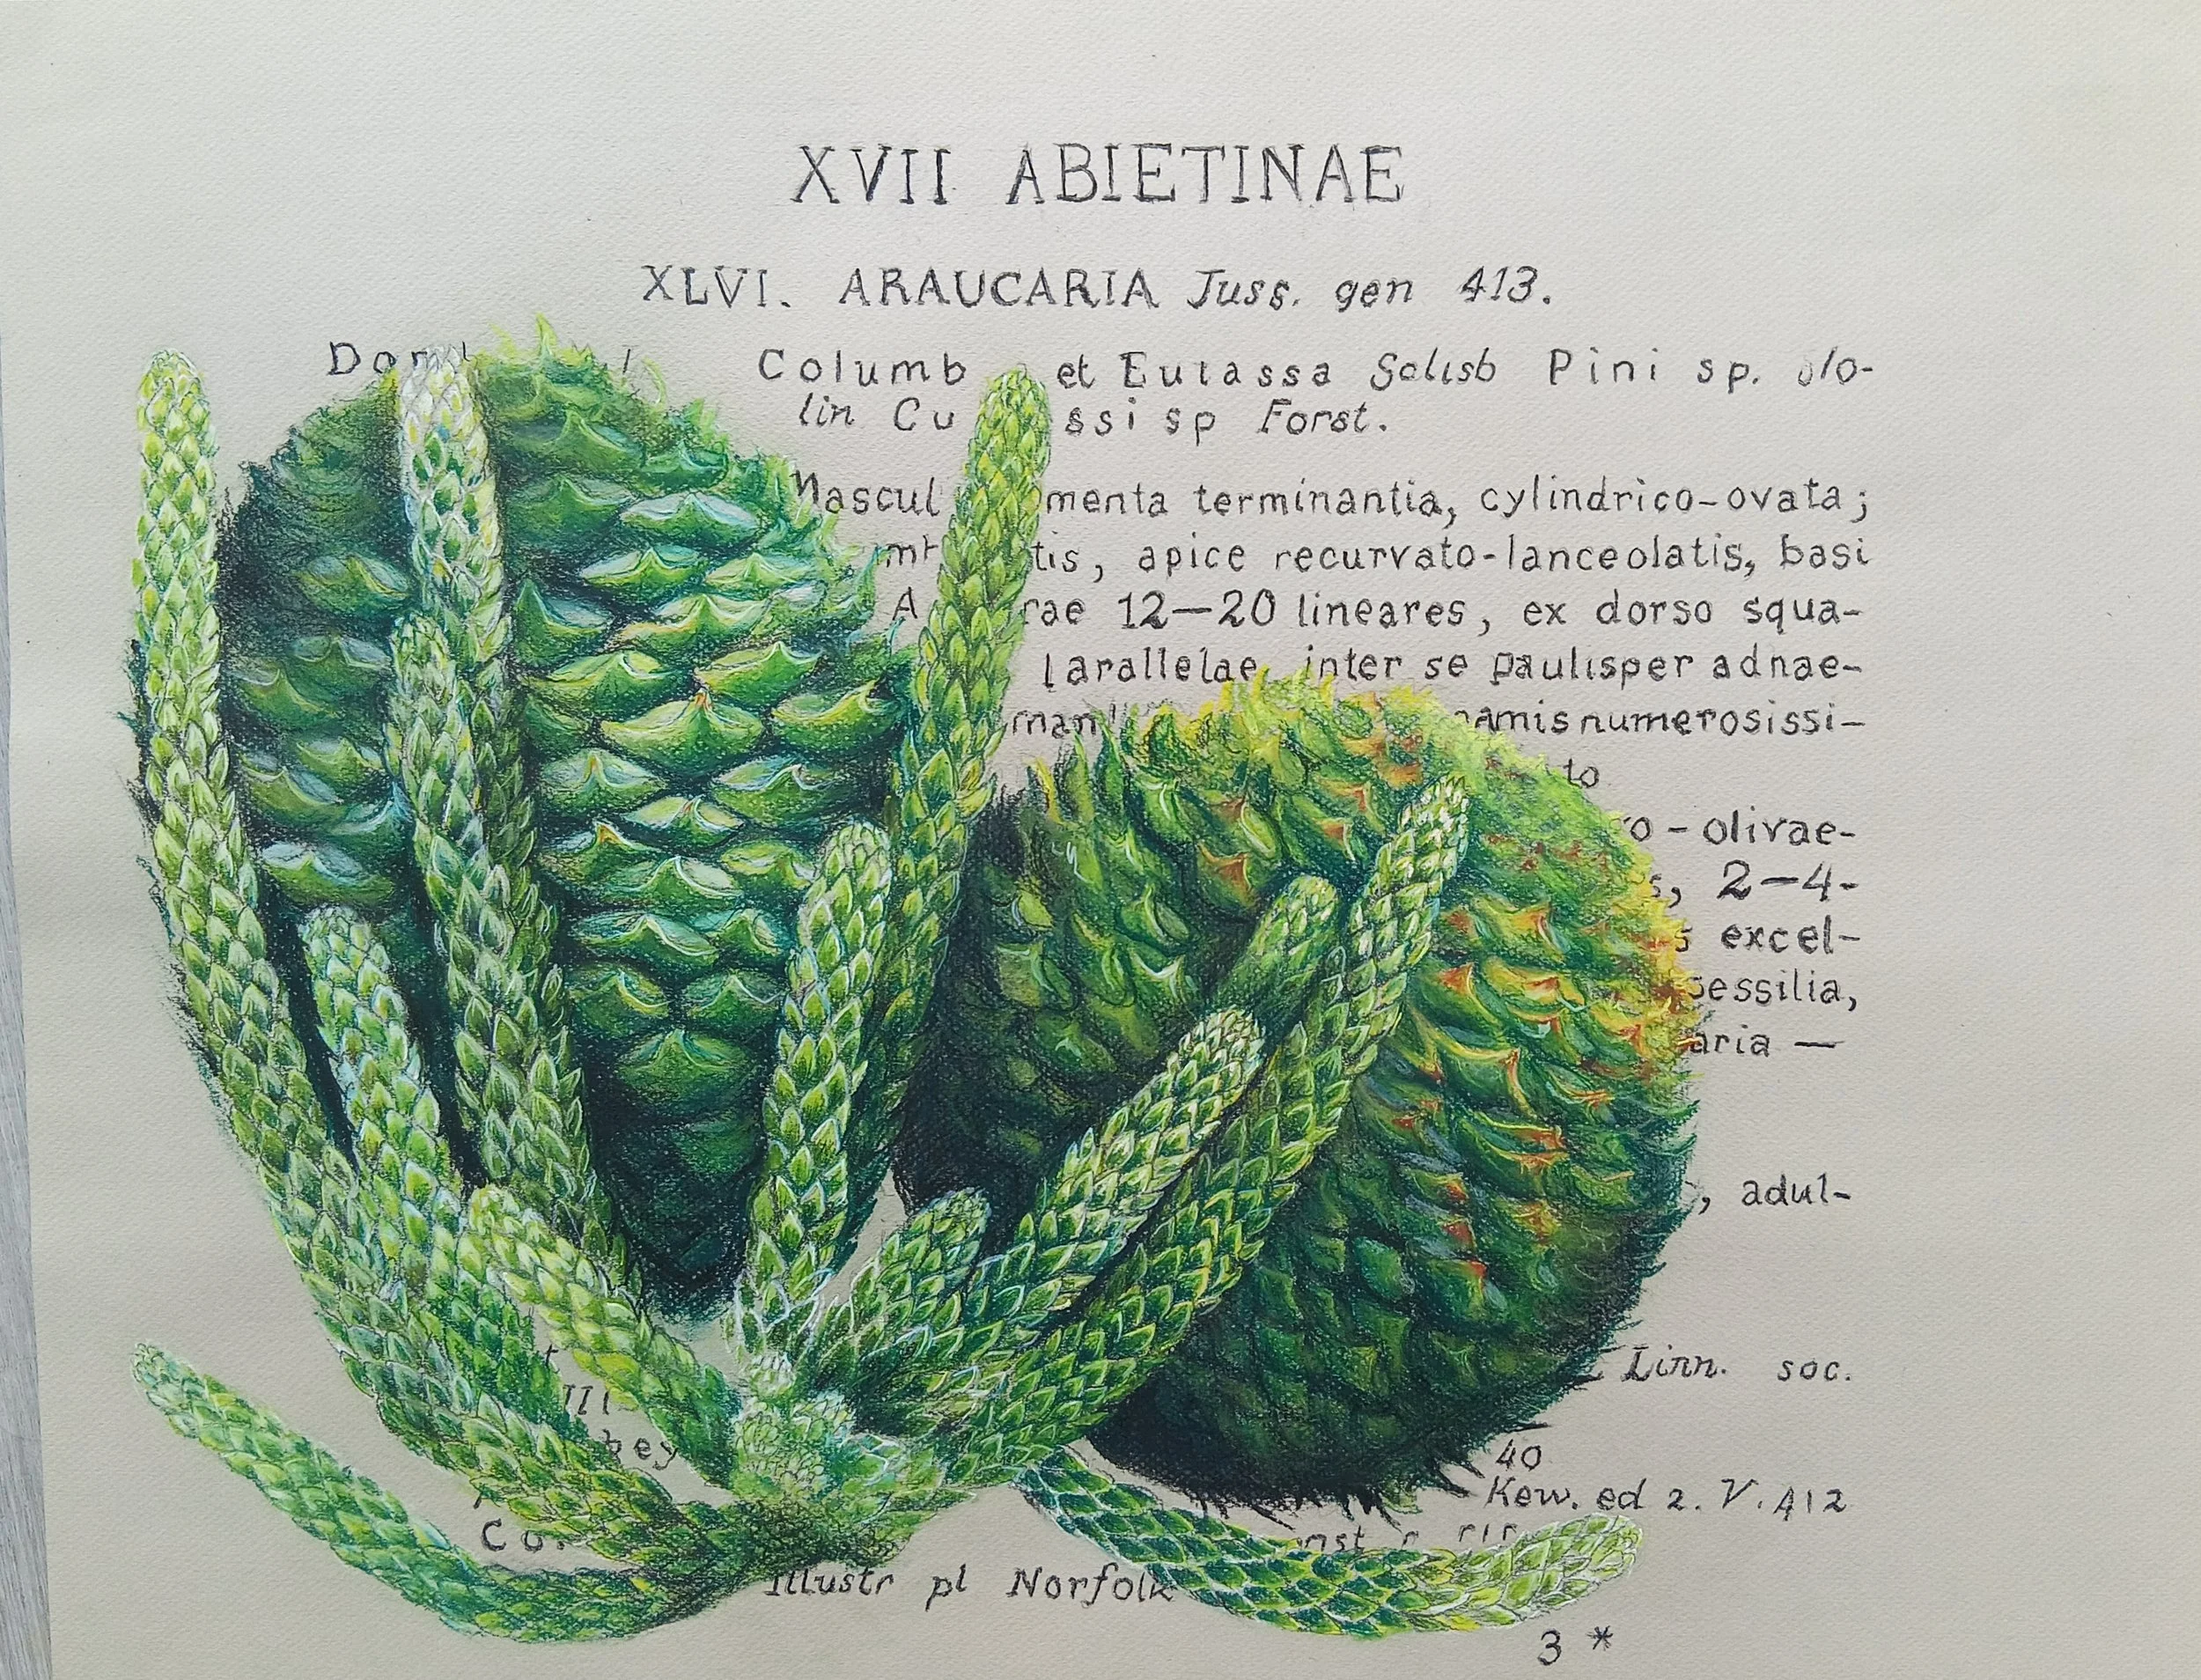 XVII ABIETINAE
XLVI. ARAUCARIA Juss. gen 413.
Columb et Eutassa Salisb Pini sp.
lin Cu ssi sp Forst.
Mascul menta terminantia, cylindrico-ovata;
tis, apice recurvato-lanceolatis, basi
A rae 12—20 lineares, ex dorso squa-
larallelae, inter se paulisper adnae-
man amis numerosissi-
to
ro-olivae-
s, 2-4-
s excel-
sessilia,
aria —
, adul-
Linn. soc.
bey
40
Kew. ed 2. V. 412
Co
Illustr pl Norfolk
3 *